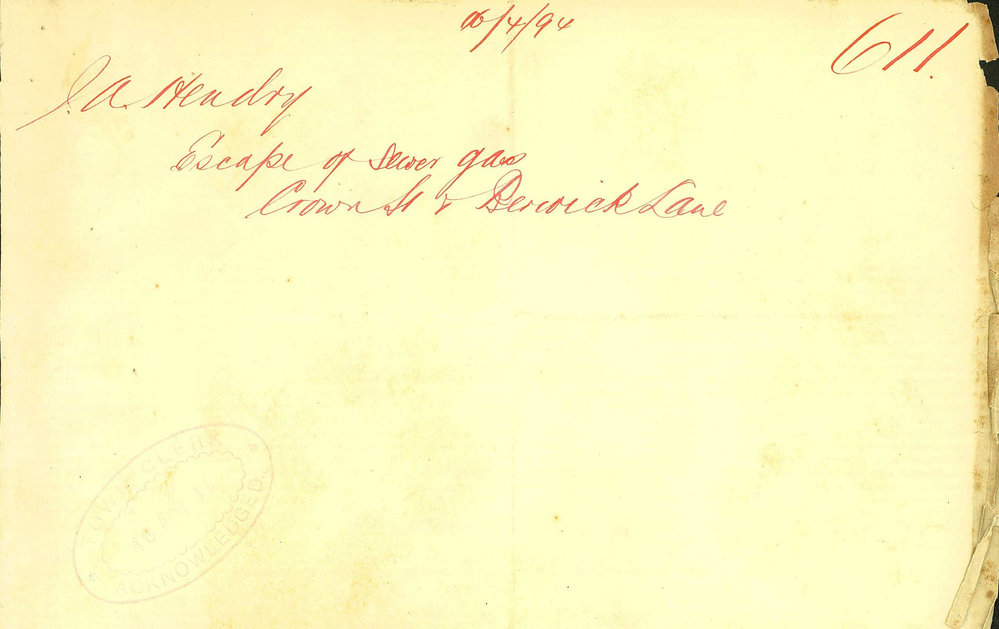 16/4/94
611.
J. A. Hendry
Escape of sewer gas
Crown St & Berwick Lane
TOWN CLERK
16 APR 94
ACKNOWLEDGED.